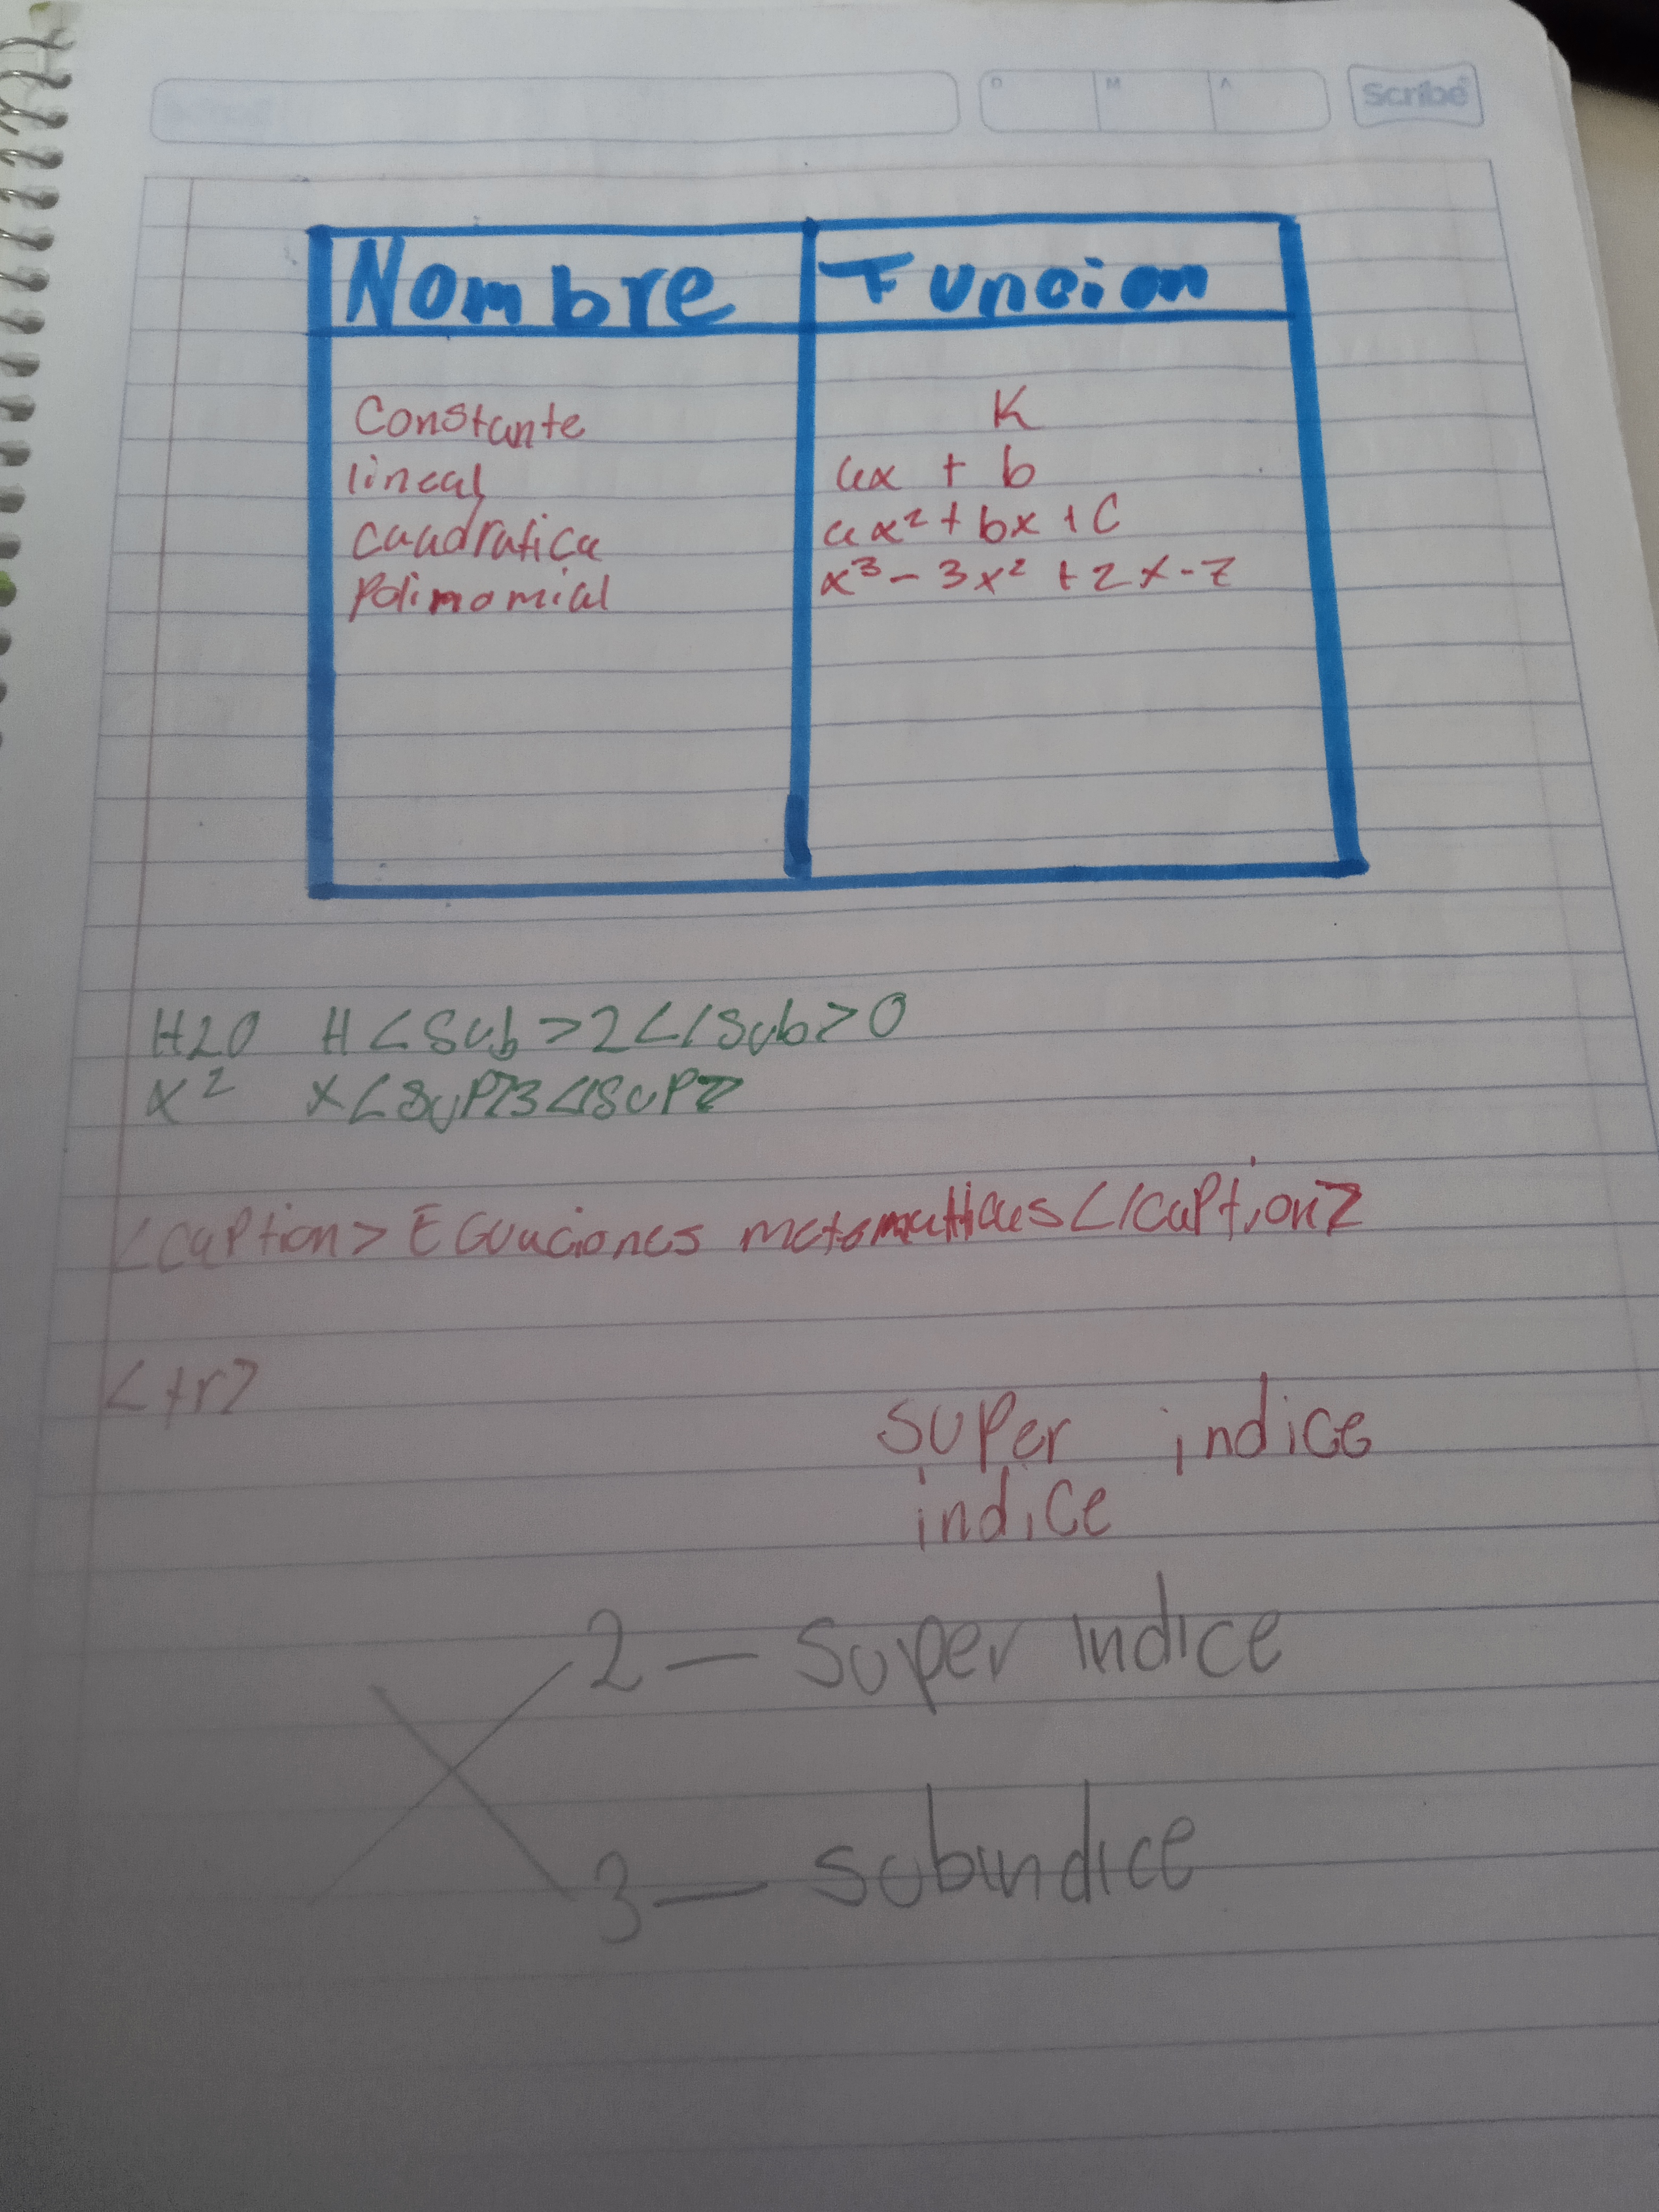 D M A Scribe
Nombre Funcion
Constante K
lineal ax + b
cuadratica ax² + bx + C
Polinomial x³ - 3x² + 2x - 7
H2O H<Sub>2</Sub>O
x² x<SuP>3</SUP>
<CaPtion> Ecuaciones matematicas</CaPtion>
<tr>
SUPer indice
indice
2 — Super indice
3 — Subindice